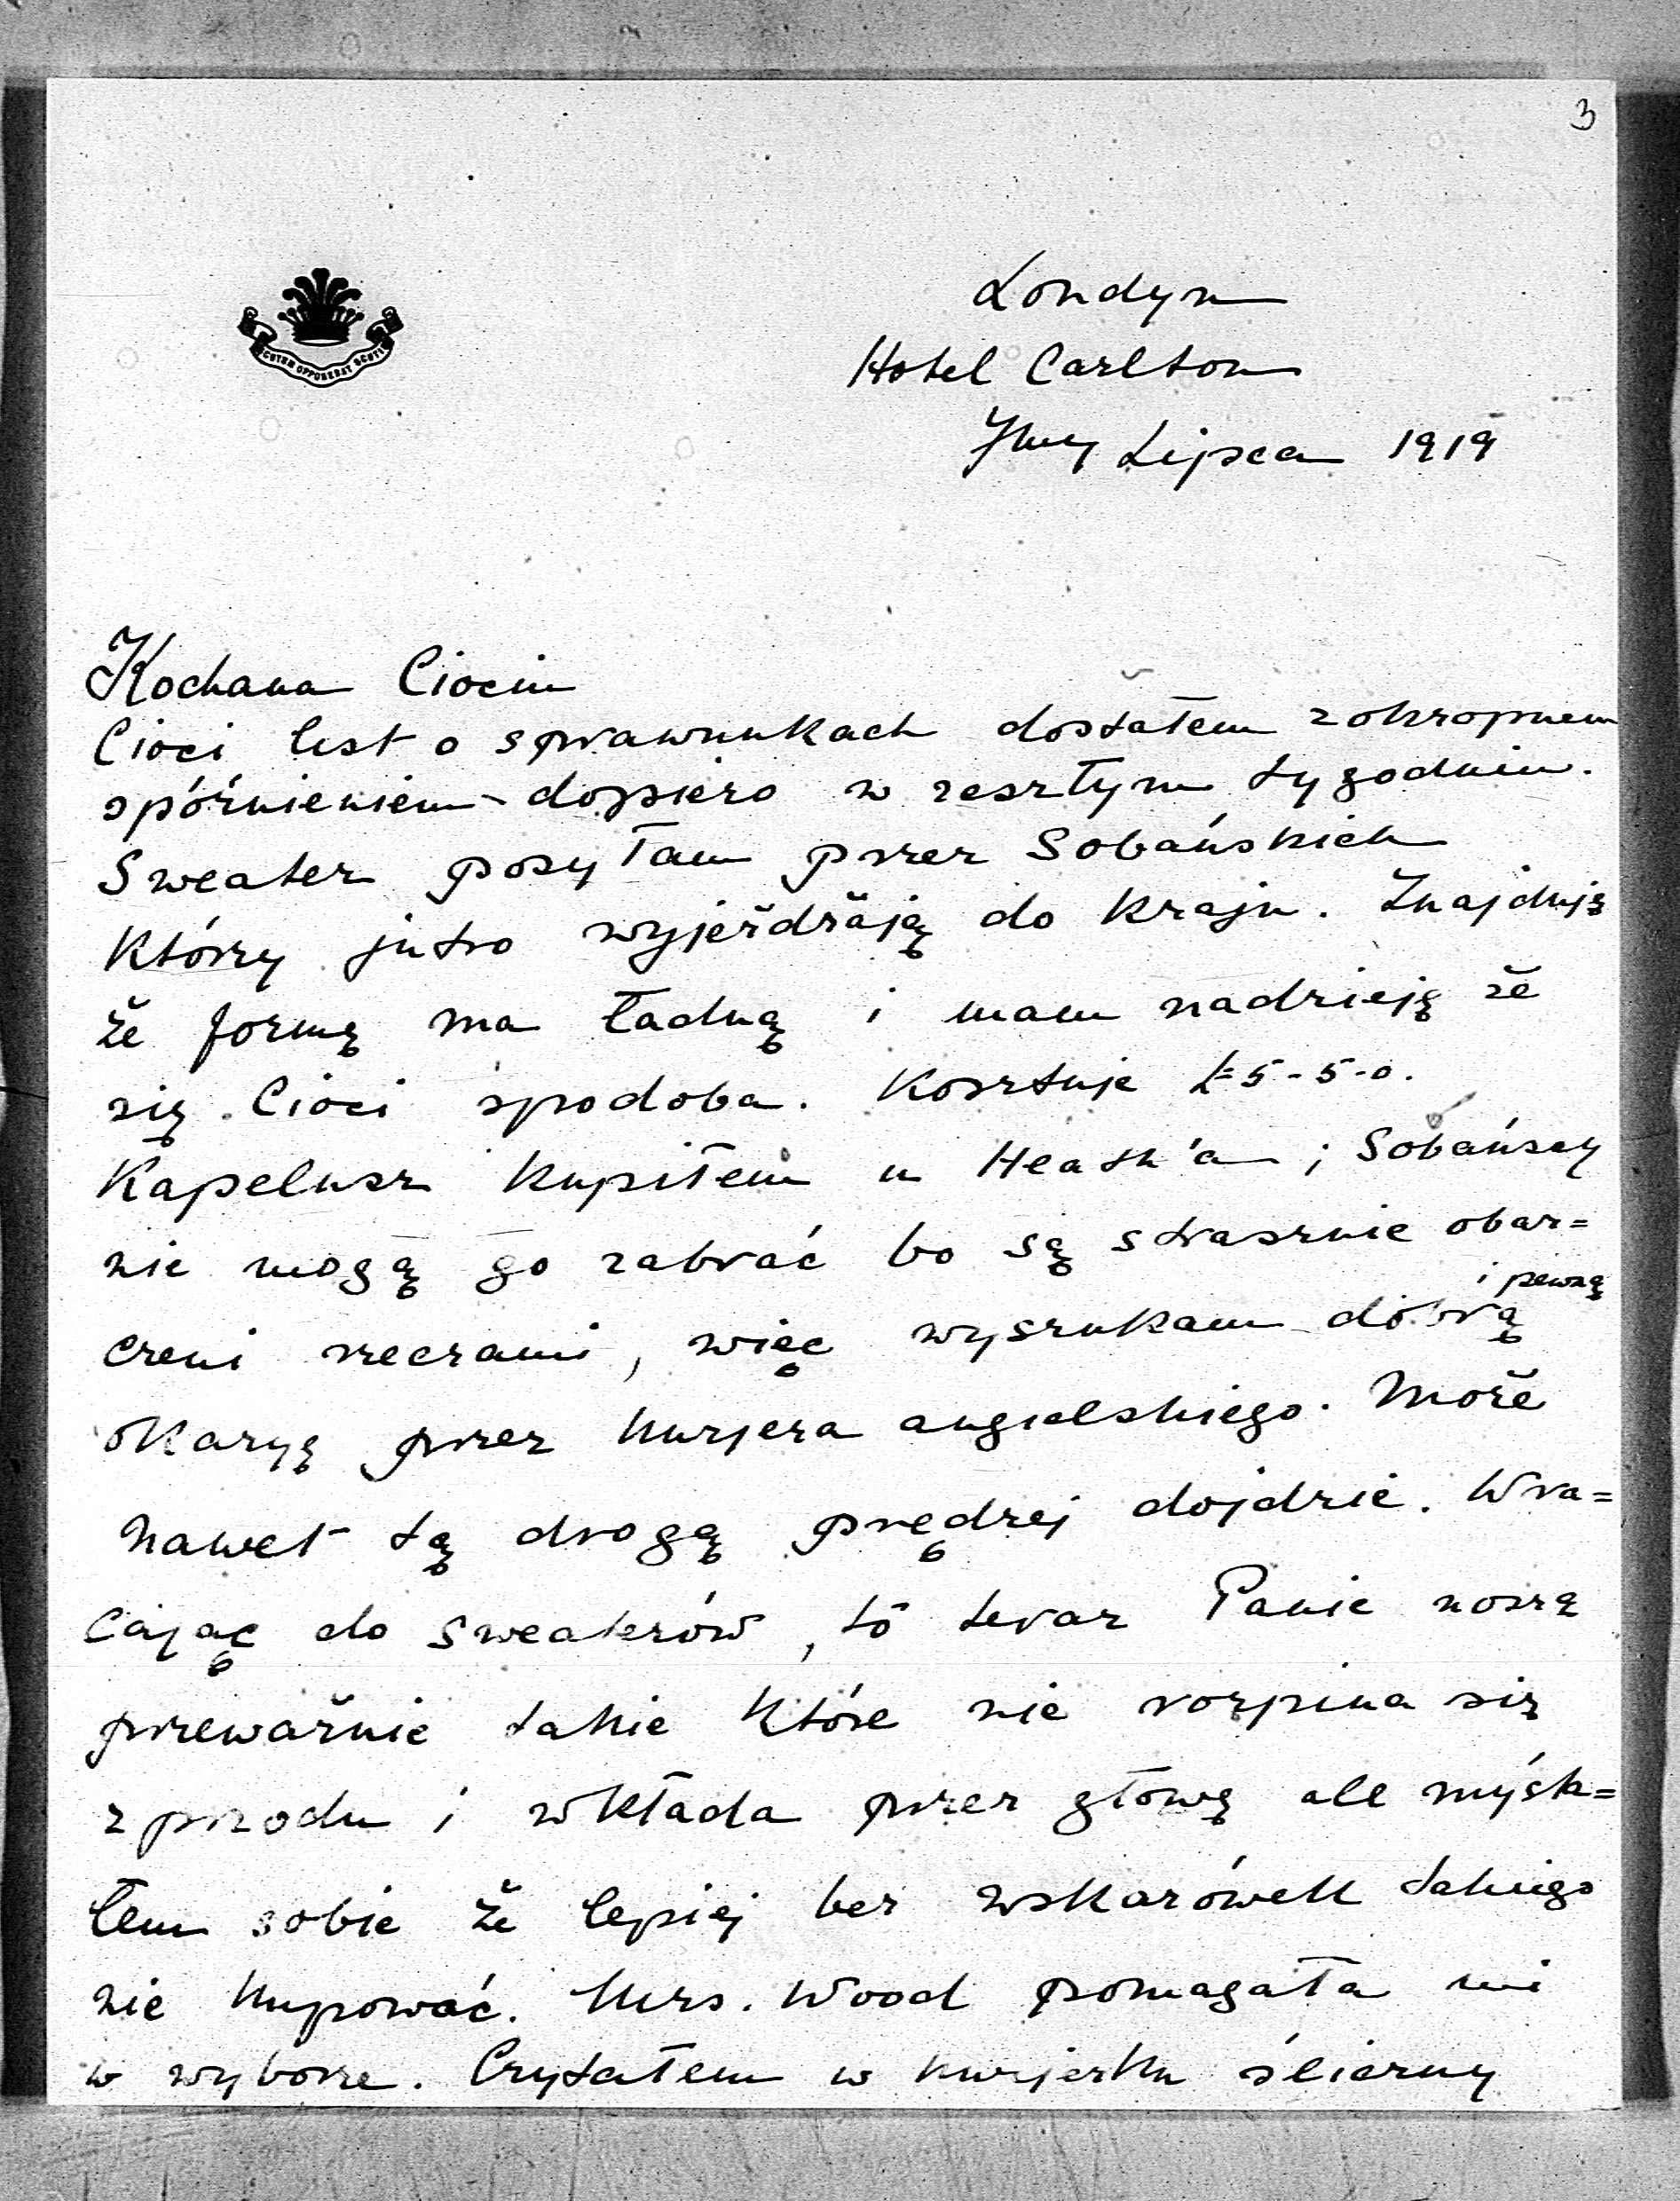 3
SCUTUM OPPONEBAT SCOTIS
Londyn
Hotel Carlton
7my Lipca 1919
Kochana Ciociu
Cioci list o sprawunkach dostałem z okropnem
spóźnieniem - dopiero w zeszłym tygodniu.
Sweater posyłam przez Sobańskich
którzy jutro wyjeżdżają do kraju. Znajduję
że formę ma ładną i mam nadzieję że
się Cioci spodoba. Kosztuje £ 5-5-0.
Kapelusz kupiłem u Heath'a; Sobańscy
nie mogą go zabrać bo są strasznie obar=
czeni rzeczami, więc wyszukam dobrą i pewną
okazyę przez kurjera angielskiego. Może
nawet tą drogą prędzej dojdzie. Wra=
cając do sweaterów, to teraz Panie noszą
przeważnie takie które nie rozpina się
z przodu i wkłada przez głowę ale myśla=
łem sobie że lepiej bez wskazówek takiego
nie kupować. Mrs. Wood pomagała mi
w wyborze. Czytałem w kurjerku śliczny